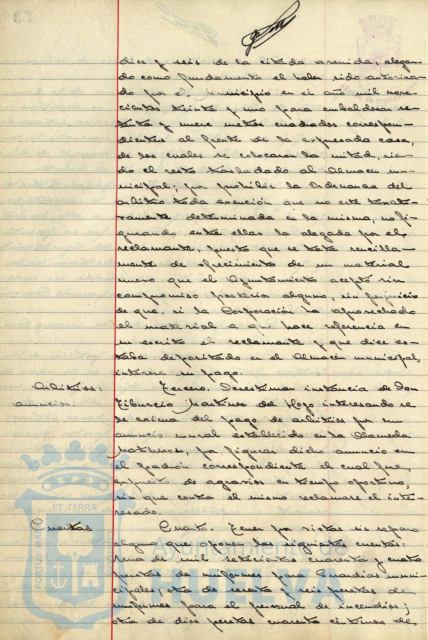 diez y seis de la citada avenida, alegan-
do como fundamento el haber sido autoriza-
do por el Municipio en el año mil nove-
cientos treinta y uno para embaldosar se-
tenta y nueve metros cuadrados correspon-
dientes al frente de la expresada casa,
de los cuales se colocaron la mitad, sien-
do el resto trasladado al Almacén mu-
nicipal; por prohibir la Ordenanza del
arbitrio toda exención que no esté taxati-
vamente determinada en la misma, no fi-
gurando entre ellas la alegada por el
reclamante, puesto que se trata sencilla-
mente de ofrecimiento de un material
nuevo que el Ayuntamiento aceptó sin
compromiso posterior alguno, sin perjuicio
de que, si la Corporación ha aprovechado
el material a que hace referencia en
su escrito el reclamante y que dice es-
taba depositado en el Almacén municipal,
interese su pago.
Arbitrios:
anuncios.
Tercero. Desestimar instancia de Don
Tiburcio Martínez del Hoyo interesando se
le exima del pago de arbitrios por un
anuncio mural establecido en la Alameda
por figurar dicho anuncio en
el Padrón correspondiente el cual fue
expuesto de agravios en tiempo oportuno,
sin que contra el mismo reclamara el inte-
resado.
Cuentas
Cuarto. Tener por vistas sin reparo
alguno que oponer las siguientes cuentas:
Una de mil setecientas cuarenta y cuatro
pesetas de uniformes para Guardias muni-
cipales; otra de seis pesetas de
uniformes para el personal de incendios;
otra de diez pesetas cuarenta céntimos de
Ayuntamiento de
HUELVA
ET TERRÆ